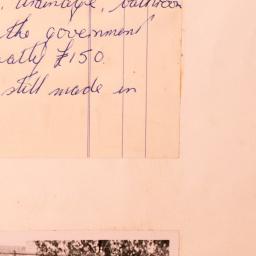 drainage, bathroom
the government
£150.
still made in